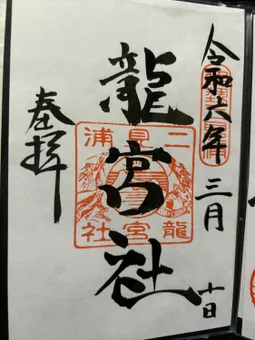 令和六年三月十日
龍宮社
奉拝
二見浦
龍宮社